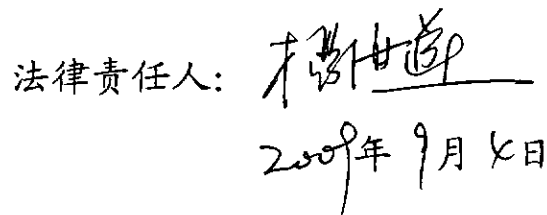 法律责任人：
2009年9月4日